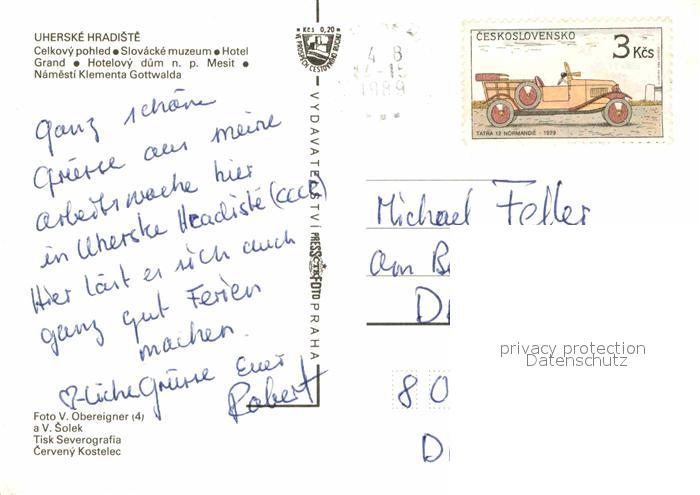 UHERSKÉ HRADIŠTĚ
Celkový pohled ● Slovácké muzeum ● Hotel
Grand ● Hotelový dům n. p. Mesit ●
Náměstí Klementa Gottwalda
Ganz schöne
Grüsse aus meine
arbeitswoche hier
in Uherske Hradiště (ČSSR)
Hier läst es sich auch
ganz gut Ferien
machen.
♡-liche Grüsse Euer
Robert
Foto V. Obereigner (4)
a V. Šolek
Tisk Severografia
Červený Kostelec
Kčs 0,20
VYDAVATELSTVÍ PRESSFOTO PRAHA
1989
ČESKOSLOVENSKO
3 Kčs
TATRA 12 NORMANDIE - 1929
Michael Feller
am B
D
8 0
D
privacy protection
Datenschutz